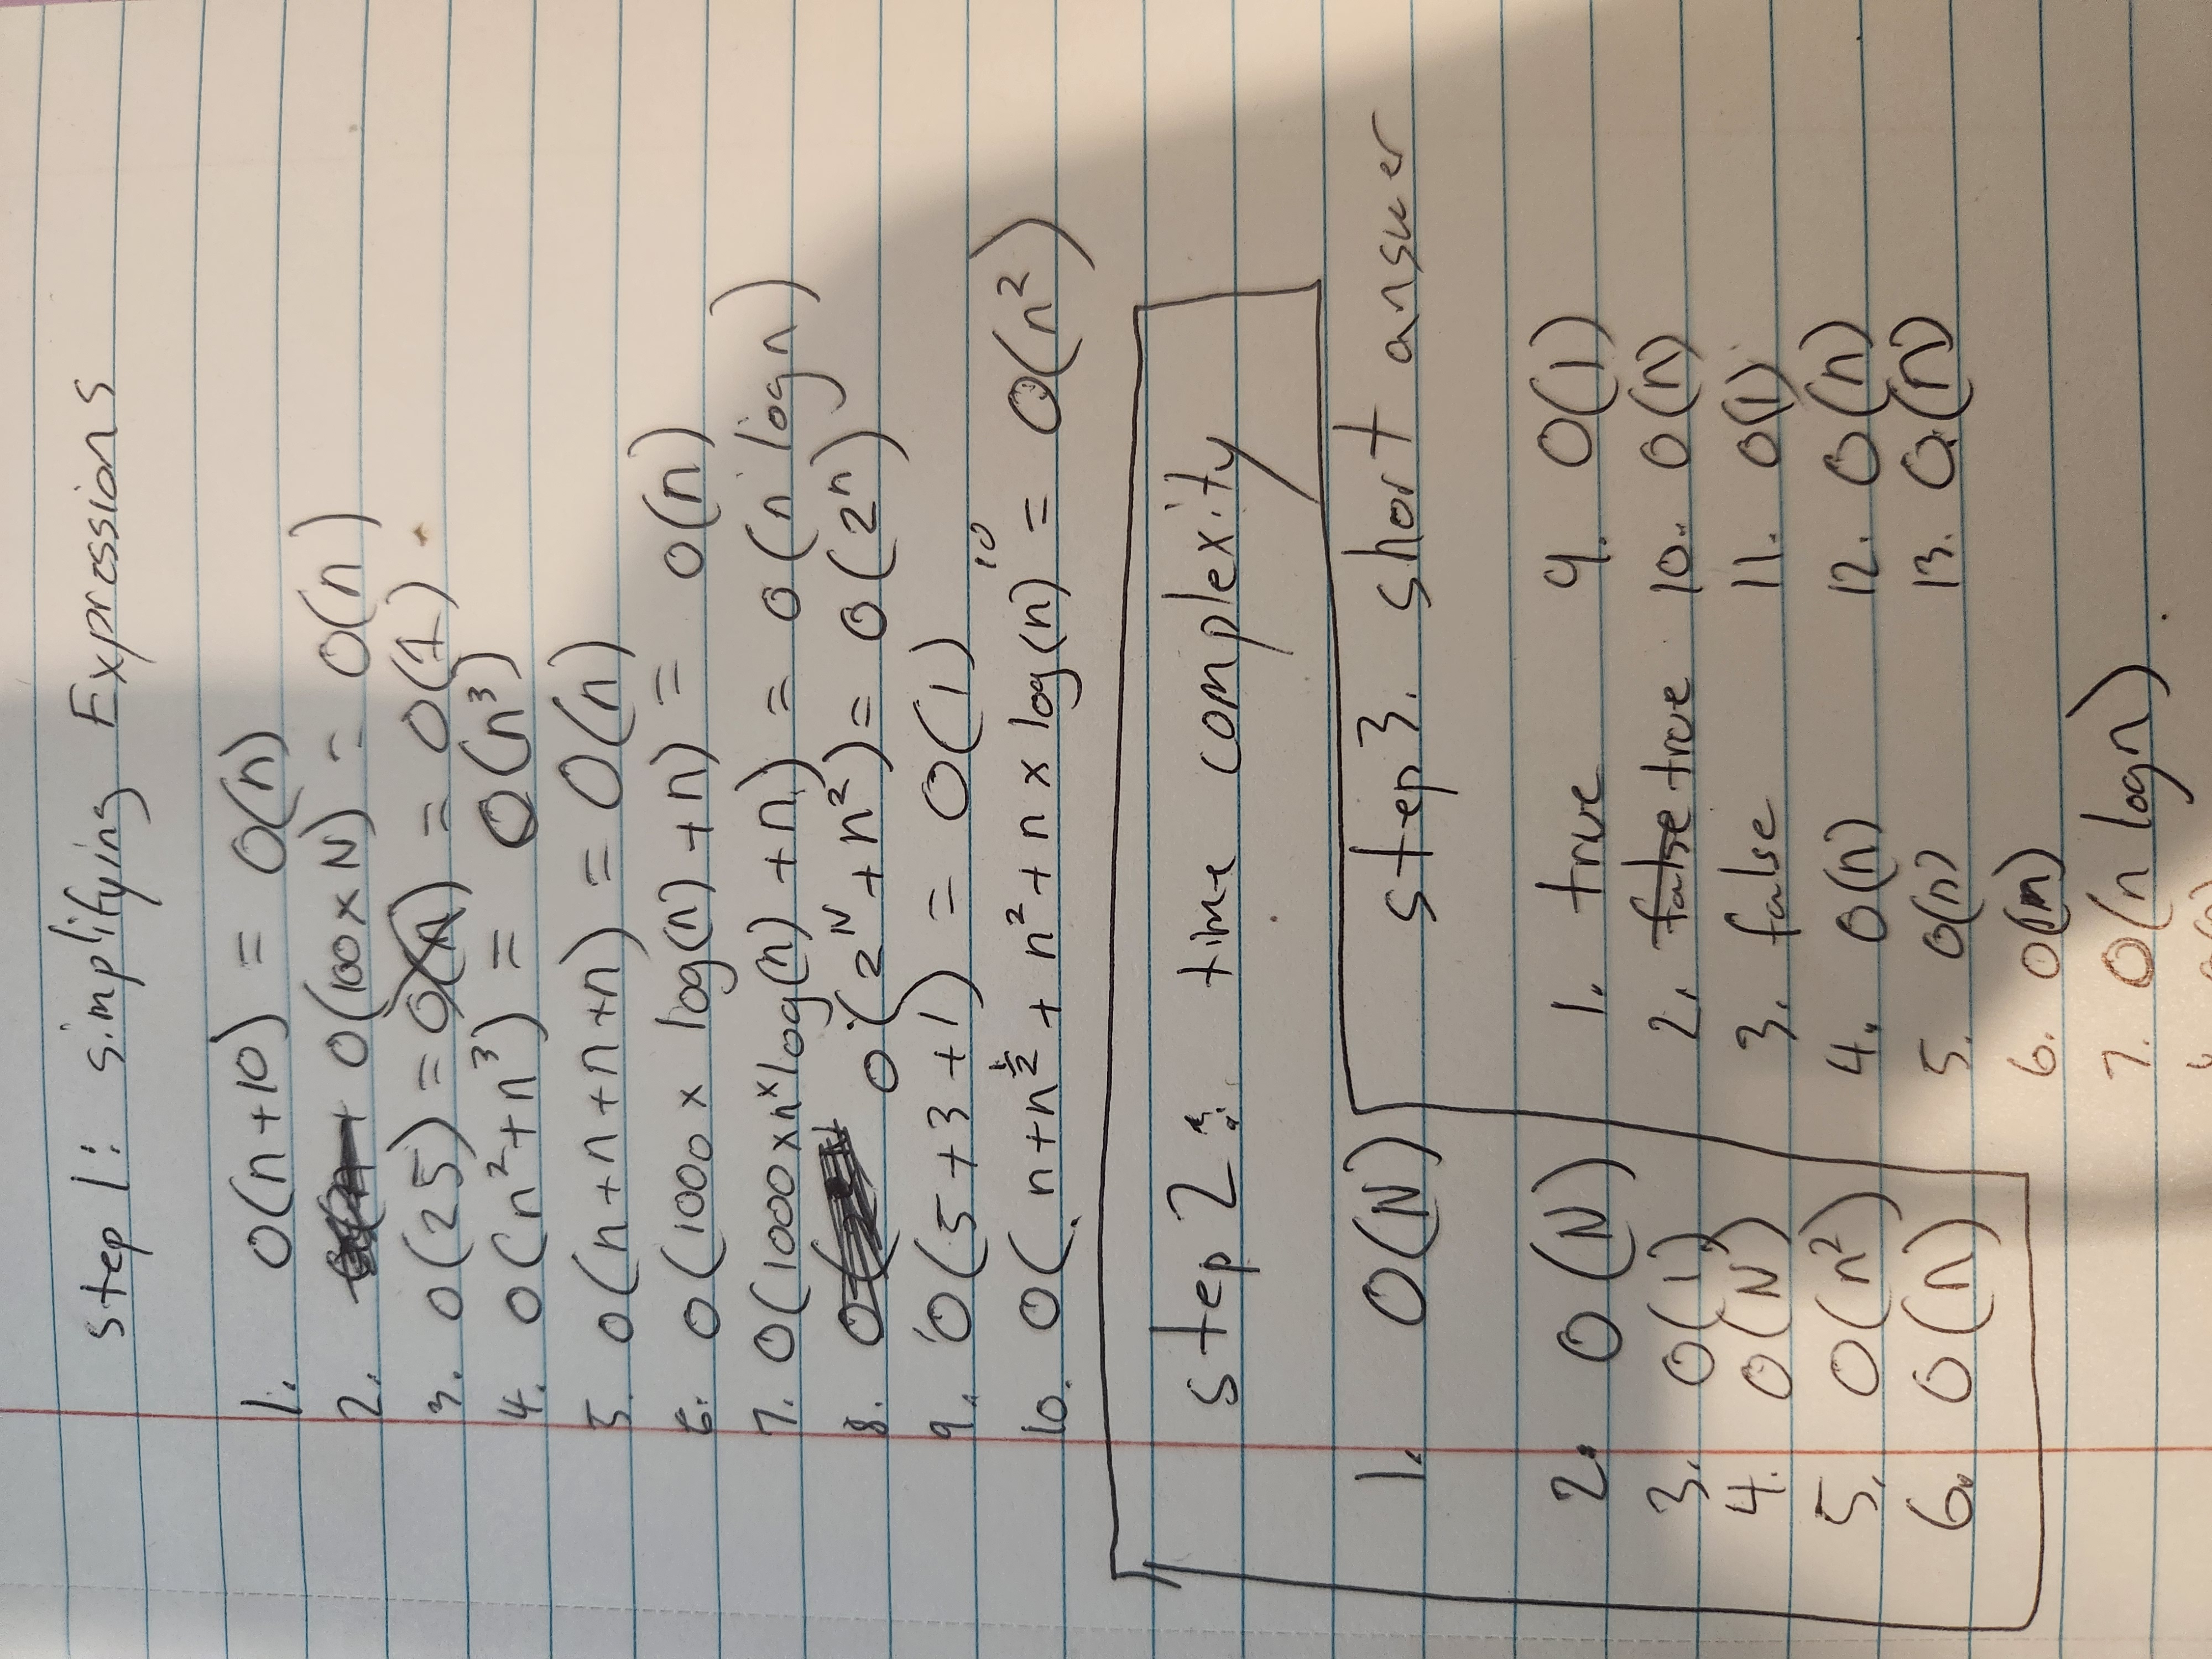 step 1: simplifying Expressions
1. O(n+10) = O(n)
2. O(100 x N) = O(n)
3. O(25) = O(n) = O(1)
4. O(n²+n³) = O(n³)
5. O(n+n+n+n) = O(n)
6. O(1000 x log(n) + n) = O(n)
7. O(1000 x n x log(n) + n) = O(n log n)
8. O(2^N + n²) = O(2^n)
9. O(5+3+1) = O(1)
10. O( n+n^½ + n² + n x log(n)^10 = O(n²)
step 2: time complexity
1. O(N)
2. O(N)
3. O(1)
4. O(N)
5. O(n²)
6. O(n)
step 3. short answer
1. true
2. false true
3. false
4. O(n)
5. O(n)
6. O(n)
7. O(n log n).
9. O(1)
10. O(n)
11. O(1)
12. O(n)
13. O(n)